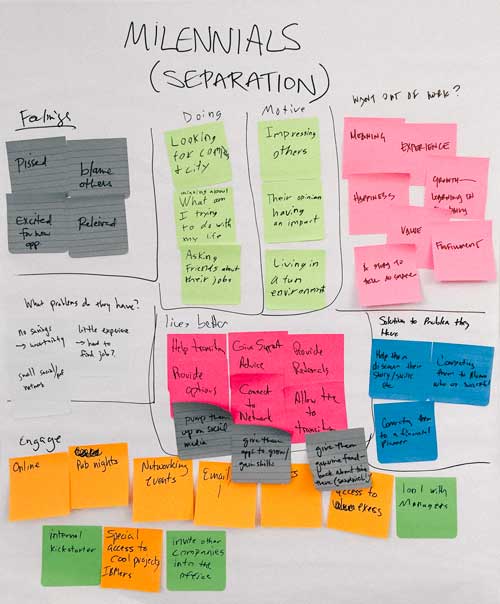 MILENNIALS
(SEPARATION)
Feelings
Pissed
blame
others
Excited
for new
opp
Relieved
Doing
Looking
for
+ city
What am
I trying
to do with
my life
Asking
Friends about
their jobs
Motive
Impressing
others
Their opinion
having
an impact
Living in
a fun
environment
WANT OUT OF WORK?
MEANING
EXPERIENCE
HAPPINESS
GROWTH
LEARNING IN
VALUE
FULFILLMENT
STORY TO
What problems do they have?
no savings
→ uncertainty
little experience
→ hard to
find job?
small
network
lives better
Help transition
Give Support
Advice
Provide
Provide
options
Connect
to
Network
Allow
to
transition
pump them
up on social
media
give them
opps to grow/
gain skills
give them
genuine feed-
back about
there (sandwich)
Solution to Problem they
Have
Help them
discover their
story/skills
etc
Connecting
them to
who
Connecting them
to a financial
planner
Engage
Online
Pub nights
Networking
Events
Email
access to
Tool with
Managers
internal
kickstarter
Special
access to
cool projects
IBMers
invite other
companies
into the
office